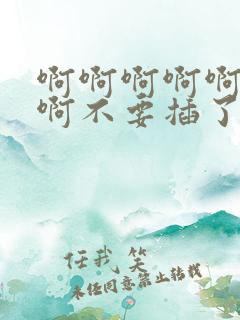 啊啊啊啊啊
啊不要插了
任我笑
未经同意禁止转载